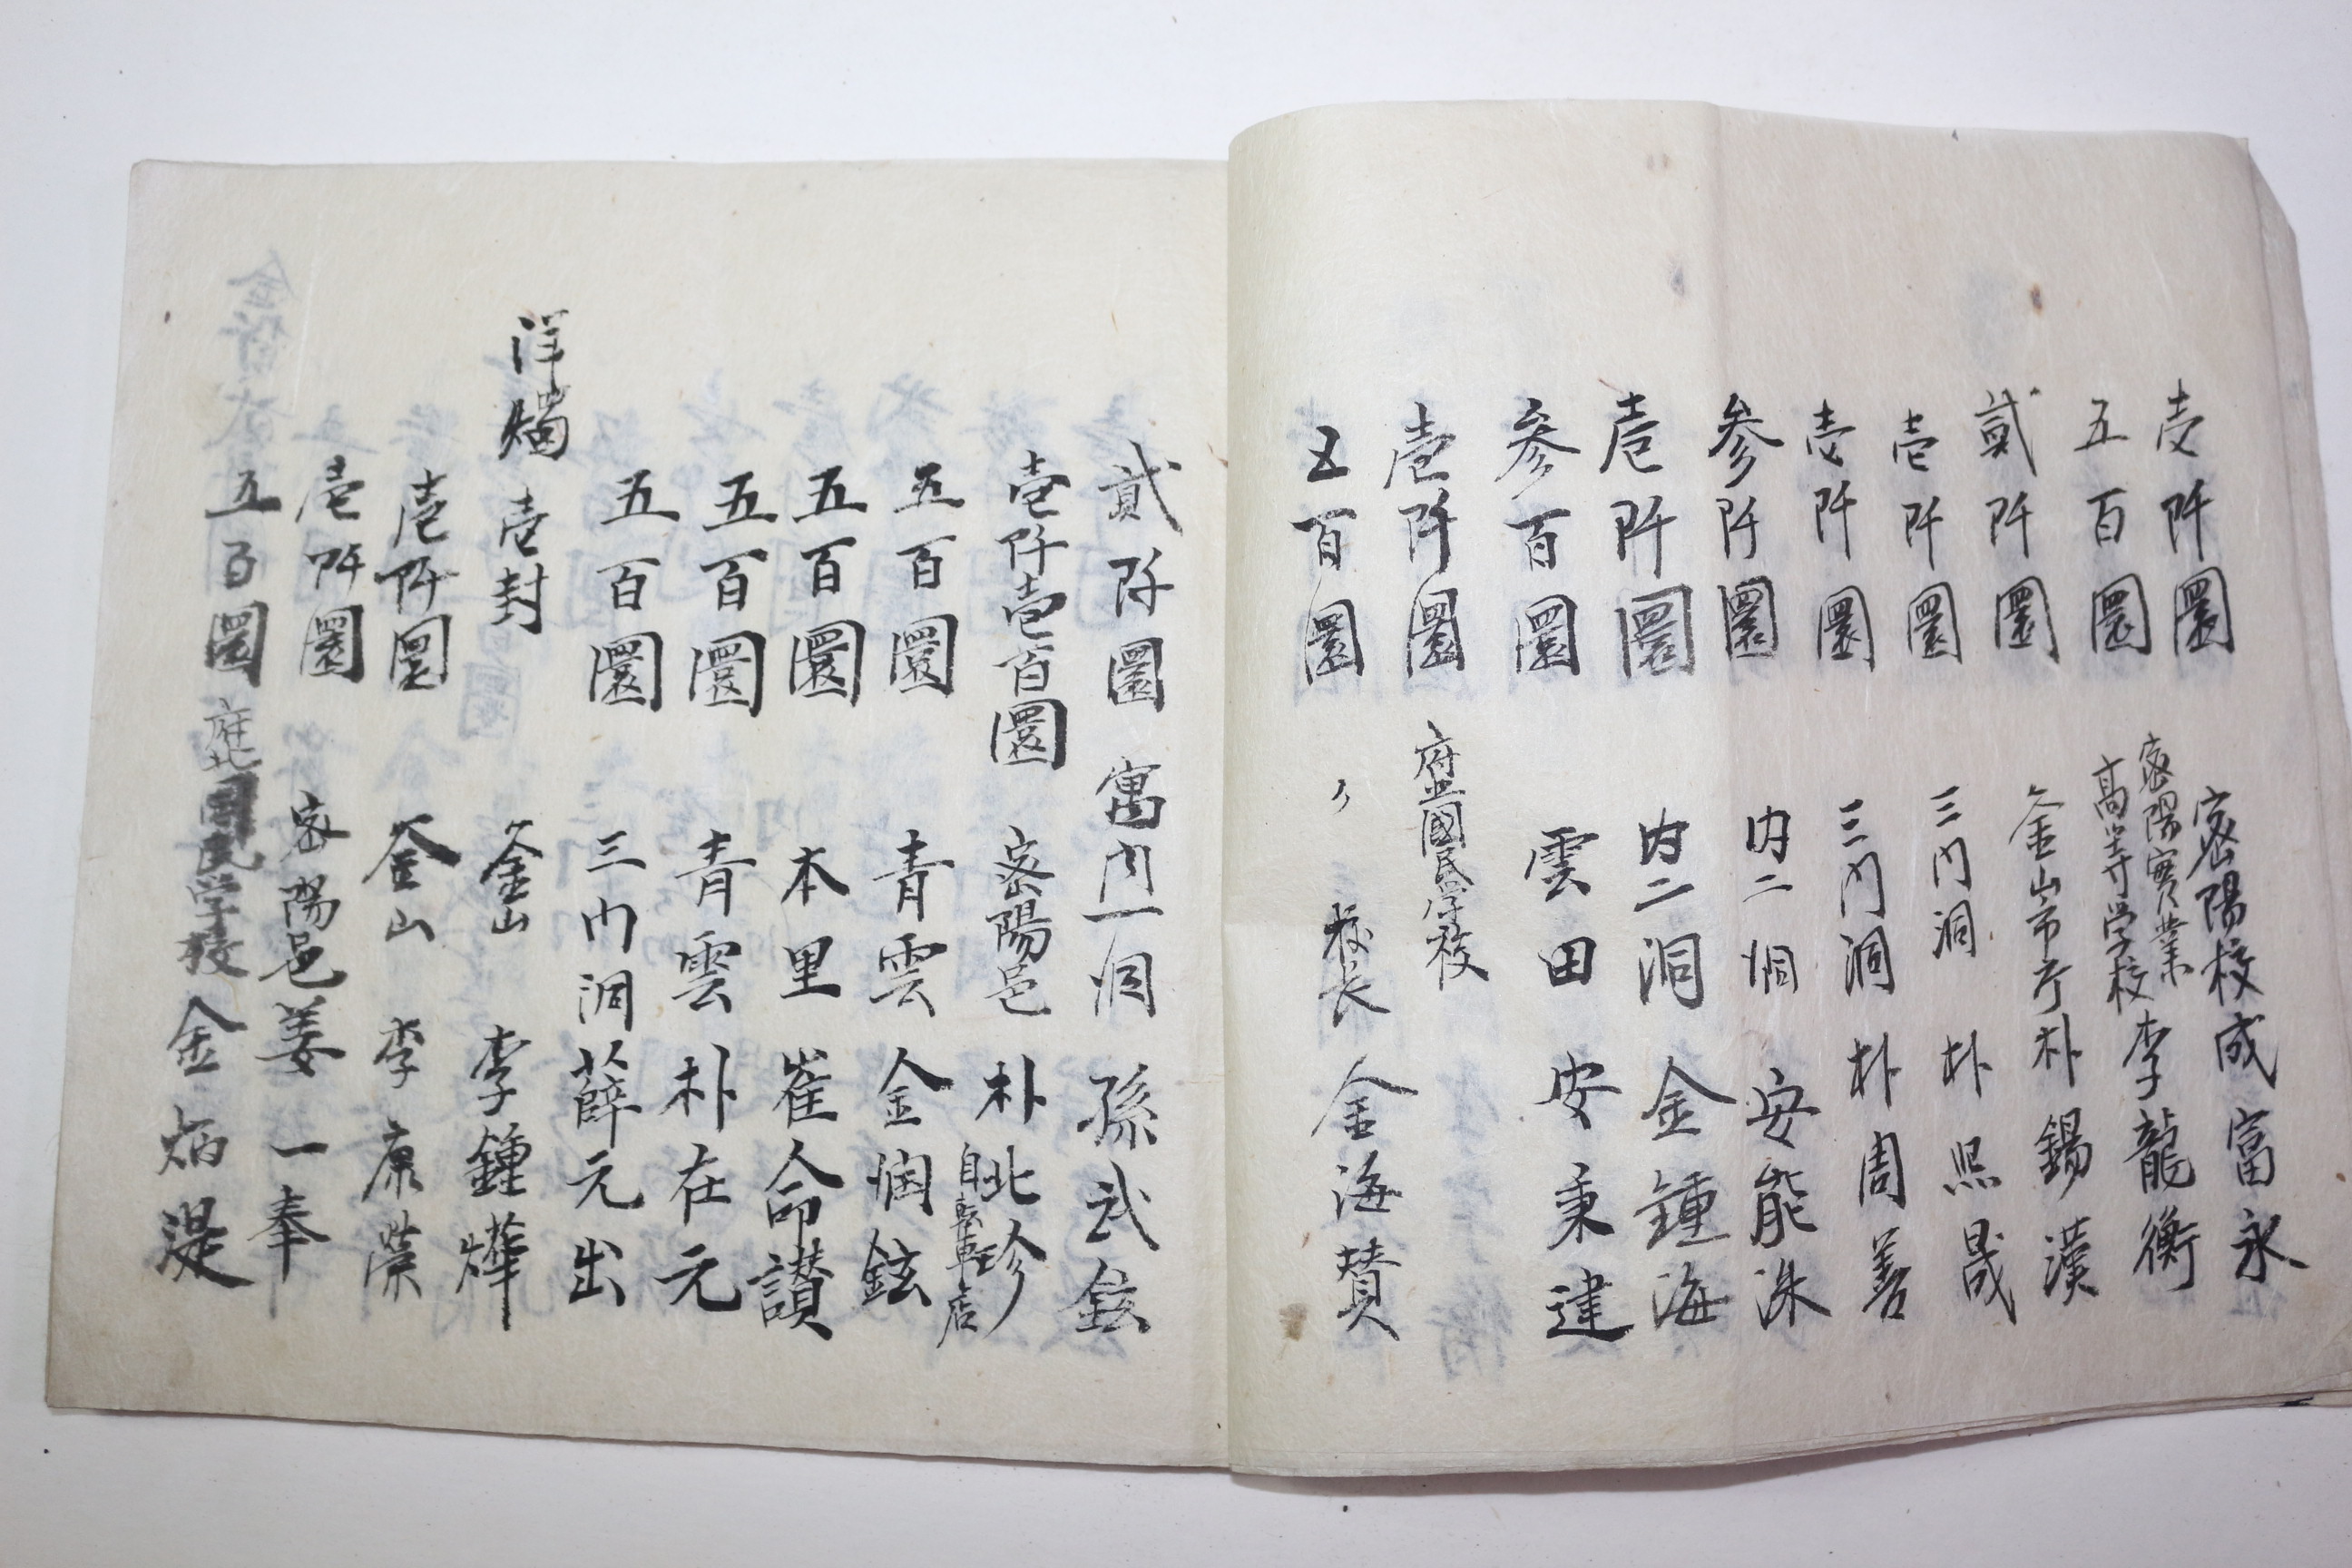 壱阡圜 密陽校 成富永
五百圜 密陽實業高等学校 李龍衡
貳阡圜 釜山市庁 朴錫漢
壱阡圜 三门洞 朴熙晟
壱阡圜 三门洞 朴周善
参阡圜 内二洞 安能洙
壱阡圜 内二洞 金鍾海
参百圜 雲田 安秉建
壱阡圜 府北國民学校
五百圜 〃 校长 金海賛
貳阡圜 寓内一洞 孫武鉉
壱阡壱百圜 密陽邑 朴兆珍 自轉車店
五百圜 青雲 金潤鉉
五百圜 本里 崔命讃
五百圜 青雲 朴在元
五百圜 三门洞 薛元出
洋燭 壱封 釜山 李鍾燁
壱阡圜 釜山 李康榮
壱阡圜 密陽邑 姜一奉
五百圜 府北国民学校 金炳湜